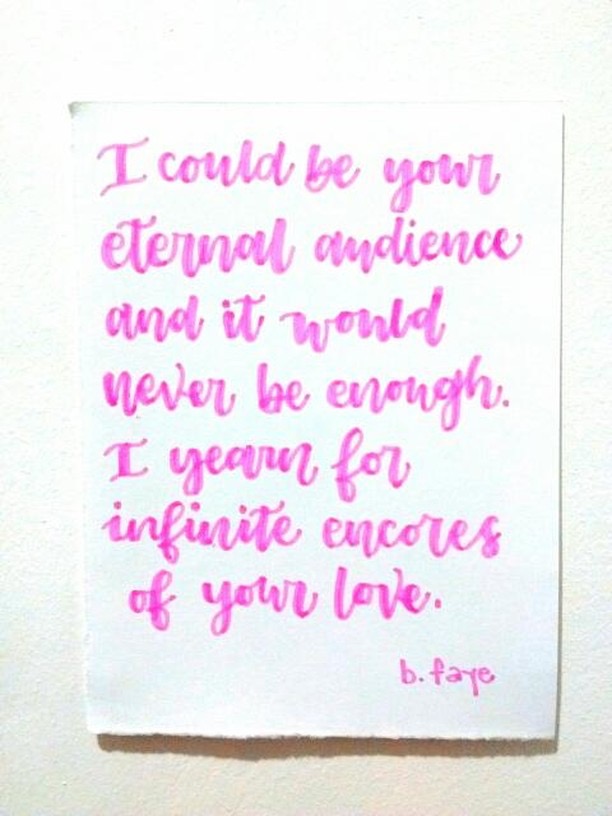 I could be your
eternal audience
and it would
never be enough.
I yearn for
infinite encores
of your love.
b. faye